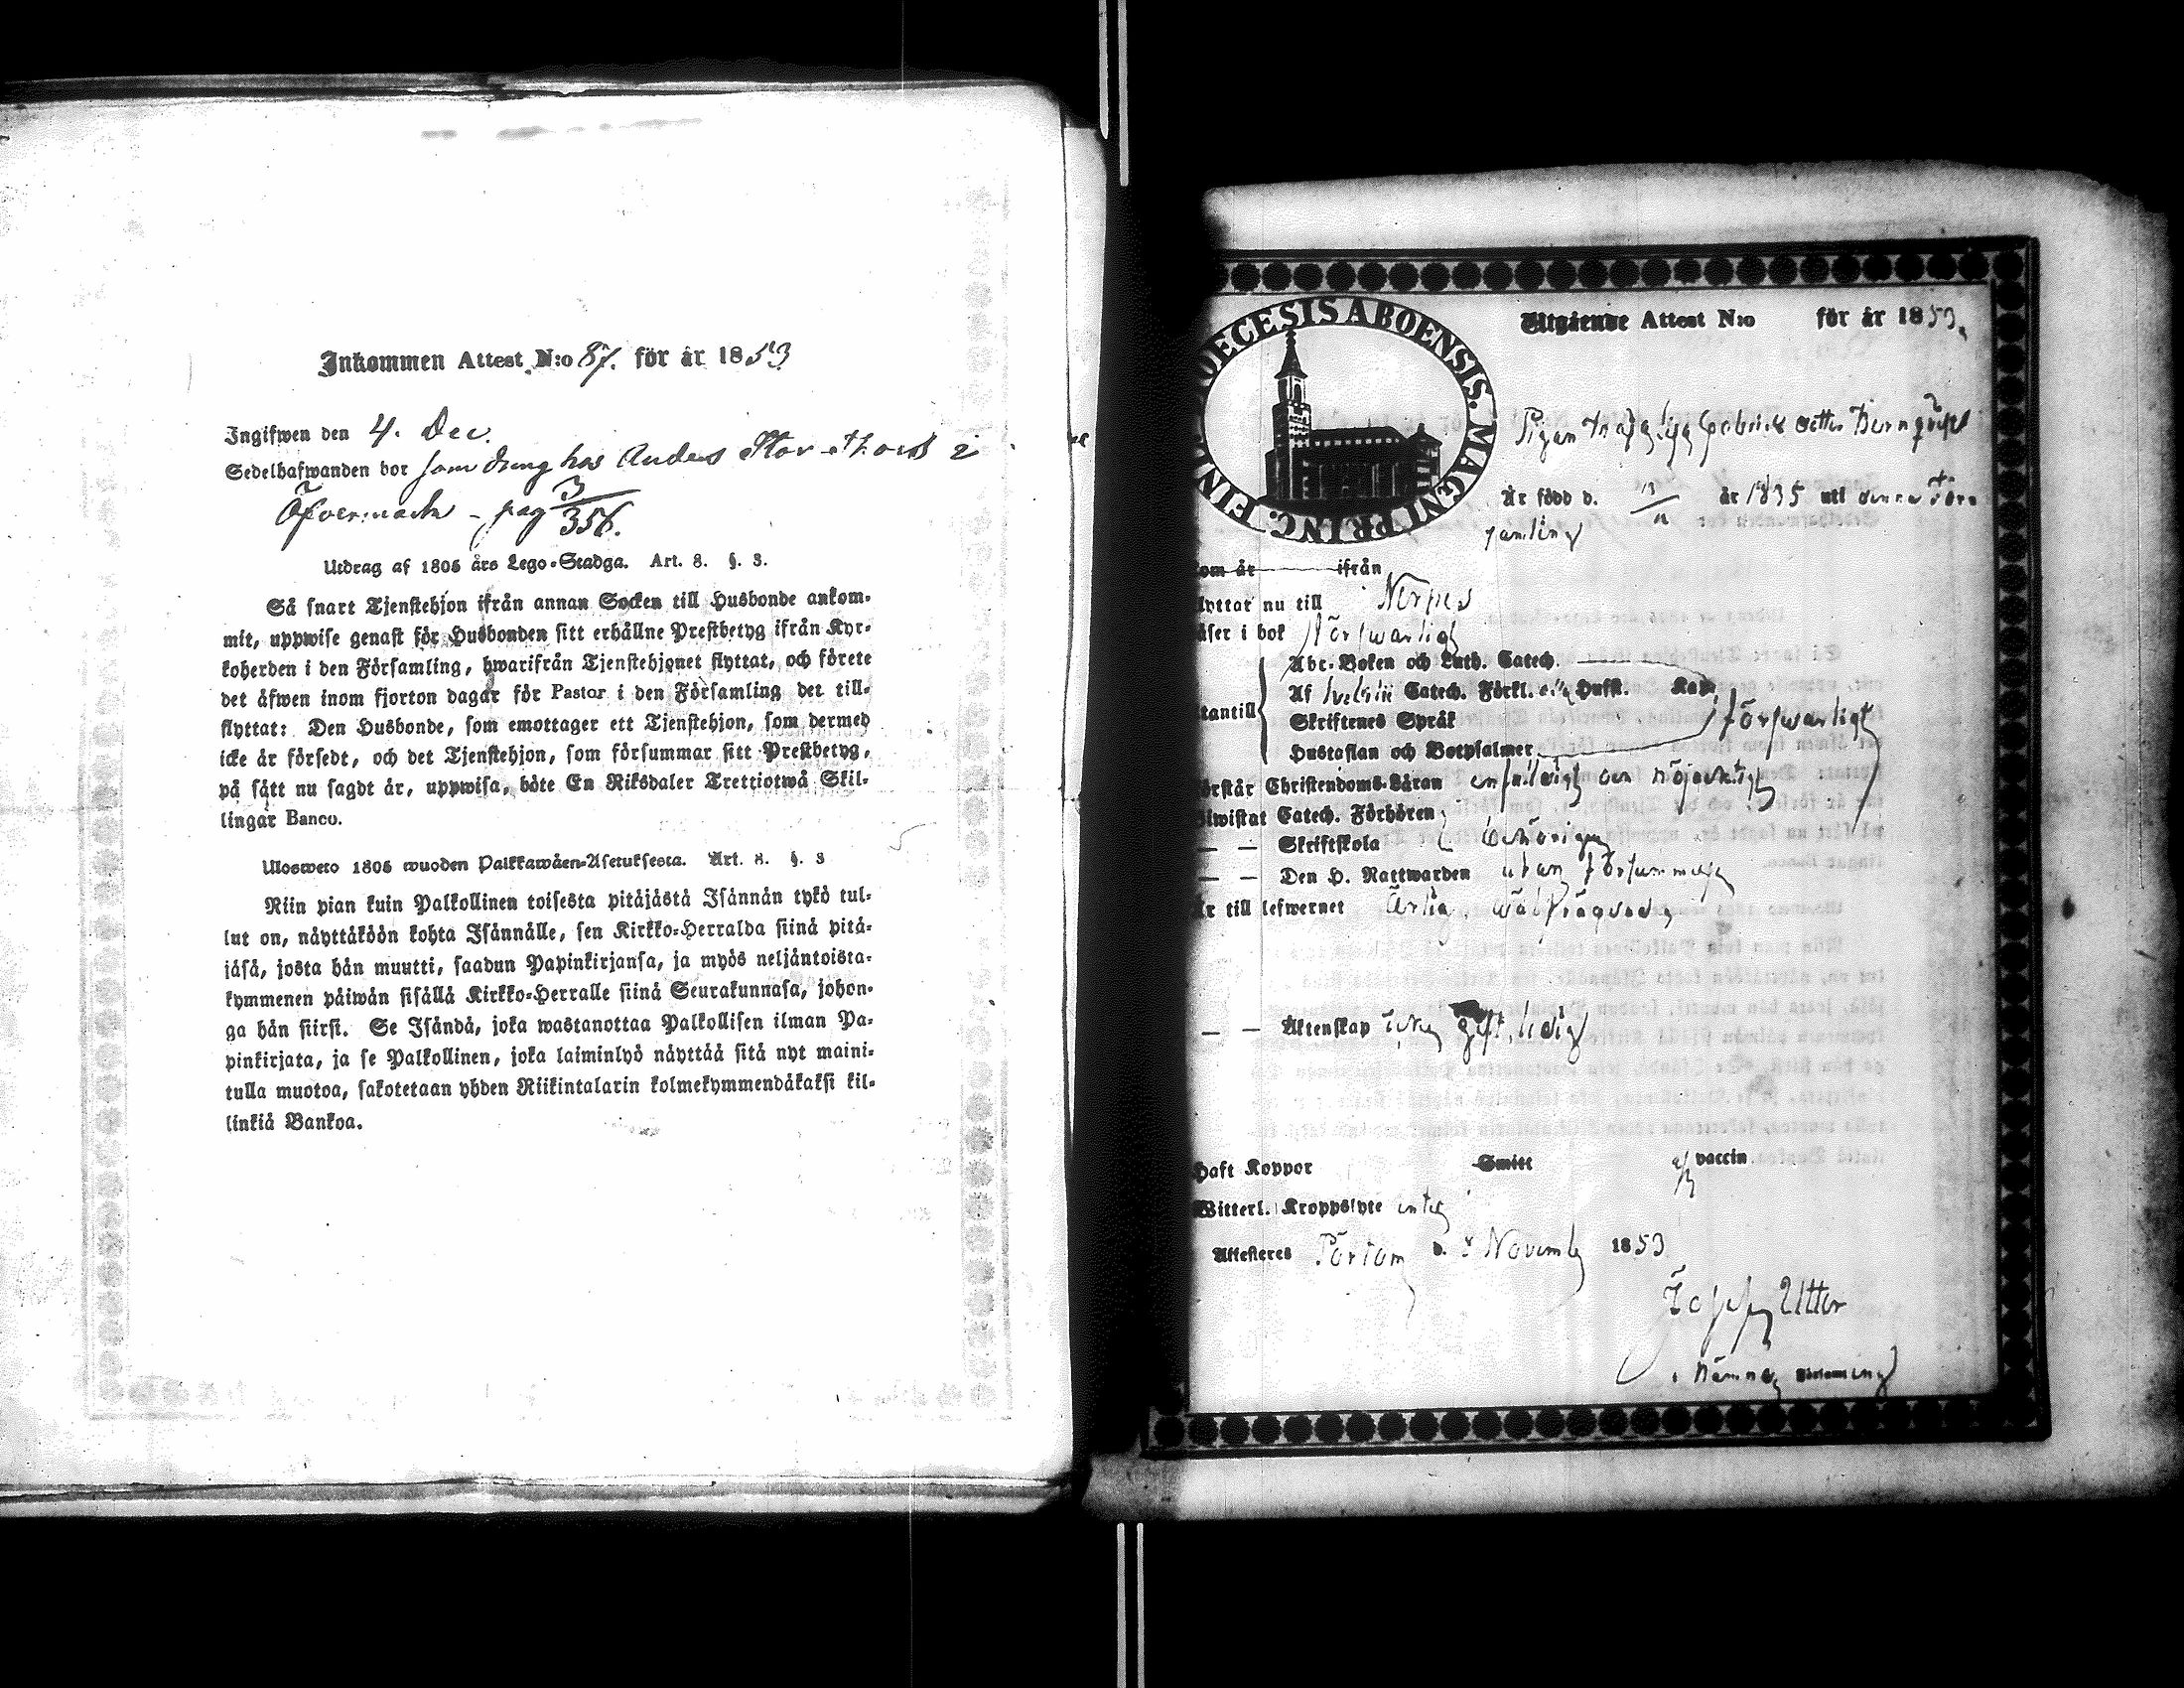 Inkommen Attest N:o 87. för år 1853
Ingifwen den 4. Dec.
Sedelhafwanden bor som dräng hos Anders Stor-Thors i
Öfvermark - pag 3/356.
Utdrag af 1805 års Lego-Stadga. Art. 8. §. 3.
Så snart Tjenstehjon ifrån annan Socken till Husbonde ankom-
mit, uppwise genast för Husbonden sitt erhållne Prestbetyg ifrån Kyr-
koherden i den Församling, hwarifrån Tjenstehjonet flyttat, och förete
det äfwen inom fjorton dagar för Pastor i den Församling det till-
flyttat: Den Husbonde, som emottager ett Tjenstehjon, som dermed
icke är försedt, och det Tjenstehjon, som försummar sitt Prestbetyg,
på sätt nu sagdt är, uppwisa, böte En Riksdaler Trettiotwå Skil-
lingar Banco.
Ulosweto 1805 wuoden Palkkawäen-Asetuksesta. Art. 8. §. 3
Niin pian kuin Palkollinen toisesta pitäjästä Isännän tykö tul-
lut on, näyttäköön kohta Isännälle, sen Kirkko-Herralda siinä pitä-
jäsä, josta hän muutti, saadun Papinkirjansa, ja myös neljäntoista-
kymmenen päiwän sisällä Kirkko-Herralle siinä Seurakunnasa, johon-
ga hän siirsi. Se Isändä, joka wastanottaa Palkollisen ilman Pa-
pinkirjata, ja se Palkollinen, joka laiminlyö näyttää sitä nyt maini-
tulla muotoa, sakotetaan yhden Riikintalarin kolmekymmendäkaksi kil-
linkiä Bankoa.
DIOECESIS ABOENSIS. MAGNI PRINC. FINL.
Utgående Attest N:o för år 1853.
Pigan Gabriels dotter
Är född d. 13/11 år 1835 uti denna För
samling
om år ifrån
lyttar nu till Nerpes
äser i bok försvarligt
Abc-Boken och Luth. Catech.
Af Svebilii Catech. Förkl. Hufst. Kap.
tantill Skriftenes Språk försvarligt
Hustaflan och Botpsalmer
örstår Christendoms-Läran enfaldigt och nöjaktigt
iwistat Catech. Förhören
— — Skriftskola behörigen
— — Den H. Nattwarden utan försummelse
r till lefwernet Ärlig, wälfrägdad
— — Äktenskap icke gift, ledig
Haft Koppor Smitt vaccin
Witterl. Kroppslyte intet
Attesteres Pörtom d. Novemb 1853
Uttor
i nämnde Församling